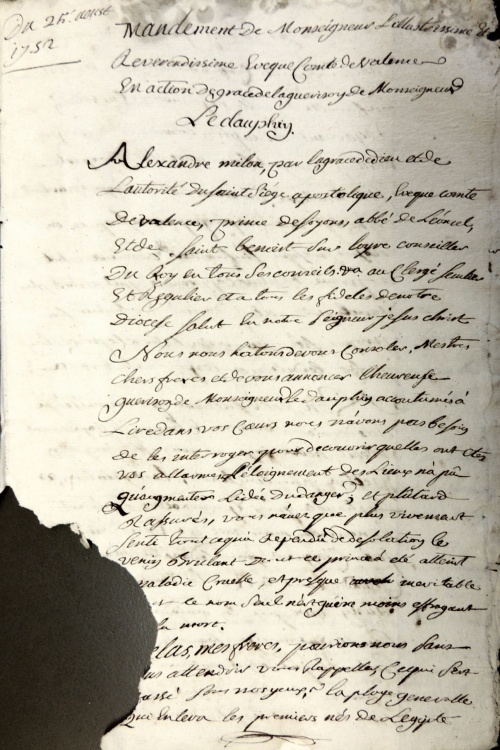 Du 25e. aoust
1752
Mandement De Monseigneur L'illustrissime &
Reverendissime Eveque Comte de Valence
En action De grace de la guerison de Monseigneur
Le dauphin.
Alexandre milon, par la grace de dieu et de
L'autorité du saint siege apostolique, Eveque comte
De valence, prince de soyons, abbé de Léoncel,
Et de saint benoist sur loyre conseiller
Du Roy en tous ses conseils. au Clergé seculier
Et Regulier et a tous les fideles de notre
Diocese salut en notre seigneur jesus christ
Nous nous hatons de vous consoler, Mes tres
chers freres et de vous annoncer l'heureuse
guerison de Monseigneur le dauphin accoutumés à
Lire dans vos coeurs nous n'avons pas besoin
de les interroger pour decouvrir quelles ont etés
vos allarmes, L'eloignement des Lieux n'a pû
Qu'augmenter L'idée du danger, et plûtard
Rassurés, vous n'avez que plus vivement
senti tout ce qu'a repandu de desolation le
venin brulant dont ce prince a été atteint
maladie Cruelle, et presque inevitable
le nom seul n'est guere moins effrayant
la mort.
helas, mes freres, pourions nous sans
vous attendrir vous Rappeller Ce qui s'est
passé sous nos yeux, la playe generalle
Qui Enleva les premiers nés de L'egipte